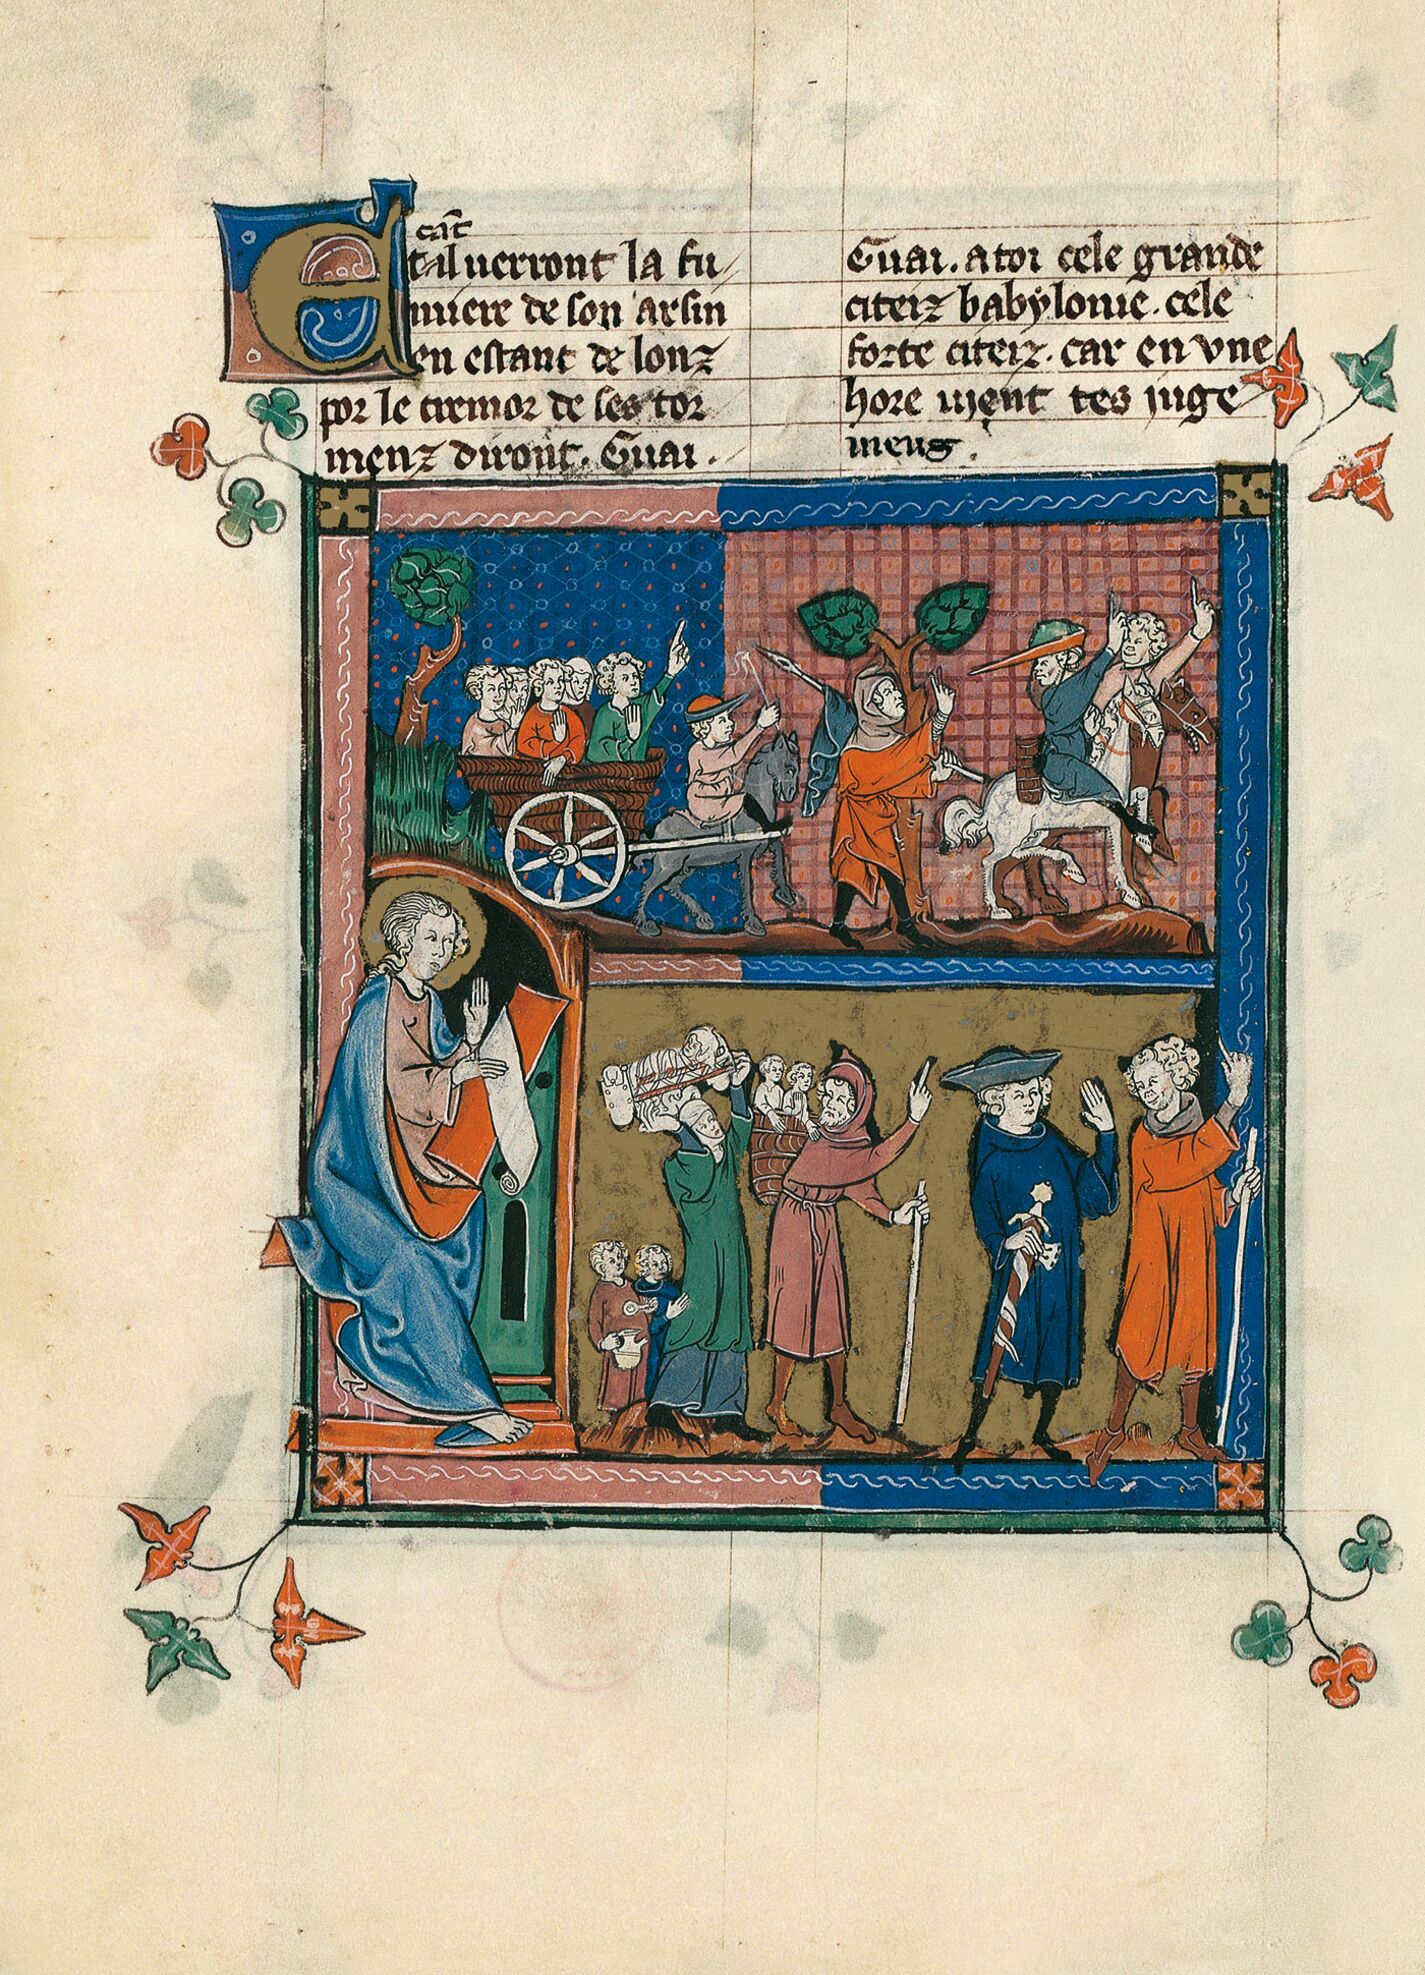 cãt
Et il uerront la fu
miere de son arsin
en estant de lonz
por le cremor de ses tor
menz diront. Guai .
Guai. a toi cele grande
citeiz babylonie. cele
forte citeiz. car en vne
hore uient tes iuge
menz .